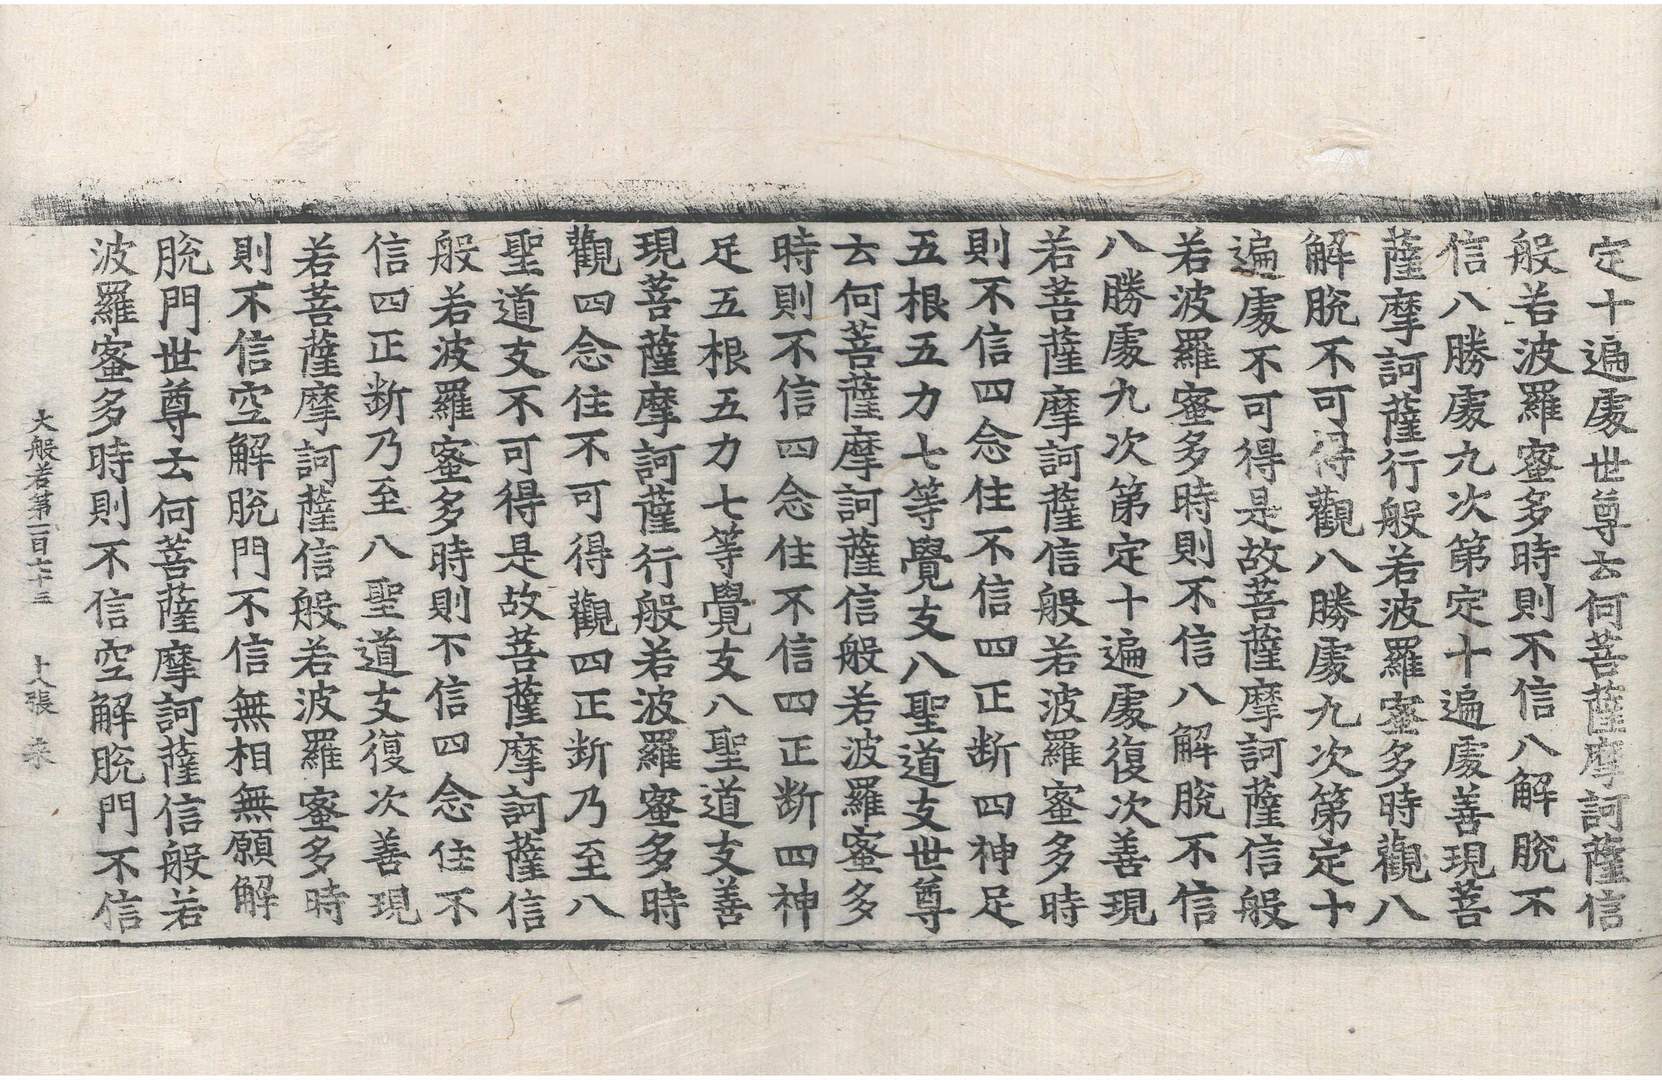 定十遍處世尊云何菩薩摩訶薩信
般若波羅蜜多時則不信八解脫不
信八勝處九次第定十遍處善現菩
薩摩訶薩行般若波羅蜜多時觀八
解脫不可得觀八勝處九次第定十
遍處不可得是故菩薩摩訶薩信般
若波羅蜜多時則不信八解脫不信
八勝處九次第定十遍處復次善現
若菩薩摩訶薩信般若波羅蜜多時
則不信四念住不信四正断四神足
五根五力七等覺支八聖道支世尊
云何菩薩摩訶薩信般若波羅蜜多
時則不信四念住不信四正断四神
足五根五力七等覺支八聖道支善
現菩薩摩訶薩行般若波羅蜜多時
觀四念住不可得觀四正断乃至八
聖道支不可得是故菩薩摩訶薩信
般若波羅蜜多時則不信四念住不
信四正断乃至八聖道支復次善現
若菩薩摩訶薩信般若波羅蜜多時
則不信空解脫門不信無相無願解
脫門世尊云何菩薩摩訶薩信般若
波羅蜜多時則不信空解脫門不信
大般若第一百七十三 十八張 来